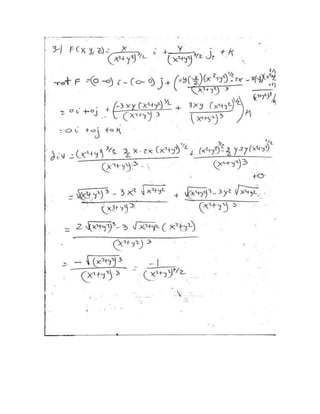 3-) F(x,y,z) = x/(x²+y²)^3/2 i + y/(x²+y²)^3/2 j + k
rot F = (0-0) i - (0-0) j +
= 0i + 0j + (-3xy (x²+y²)^1/2/(x²+y²)^3 + 3xy (x²+y²)^1/2/(x²+y²)^3) k
= 0i + 0j + 0k
div = (x²+y²)^3/2 3/2 x · 2x (x²+y²)^1/2/(x²+y²)^3 + (x²+y²)^3/2 - 3/2 y 2y (x²+y²)^1/2/(x²+y²)^3
+0
= √(x²+y²)^3 - 3x² √x²+y²/(x²+y²)^3 + √(x²+y²)^3 - 3y² √x²+y²/(x²+y²)^3
= 2√(x²+y²)^3 - 3 √x²+y² (x²+y²)/(x²+y²)^3
= -√(x²+y²)^3/(x²+y²)^3 = -1/(x²+y²)^3/2